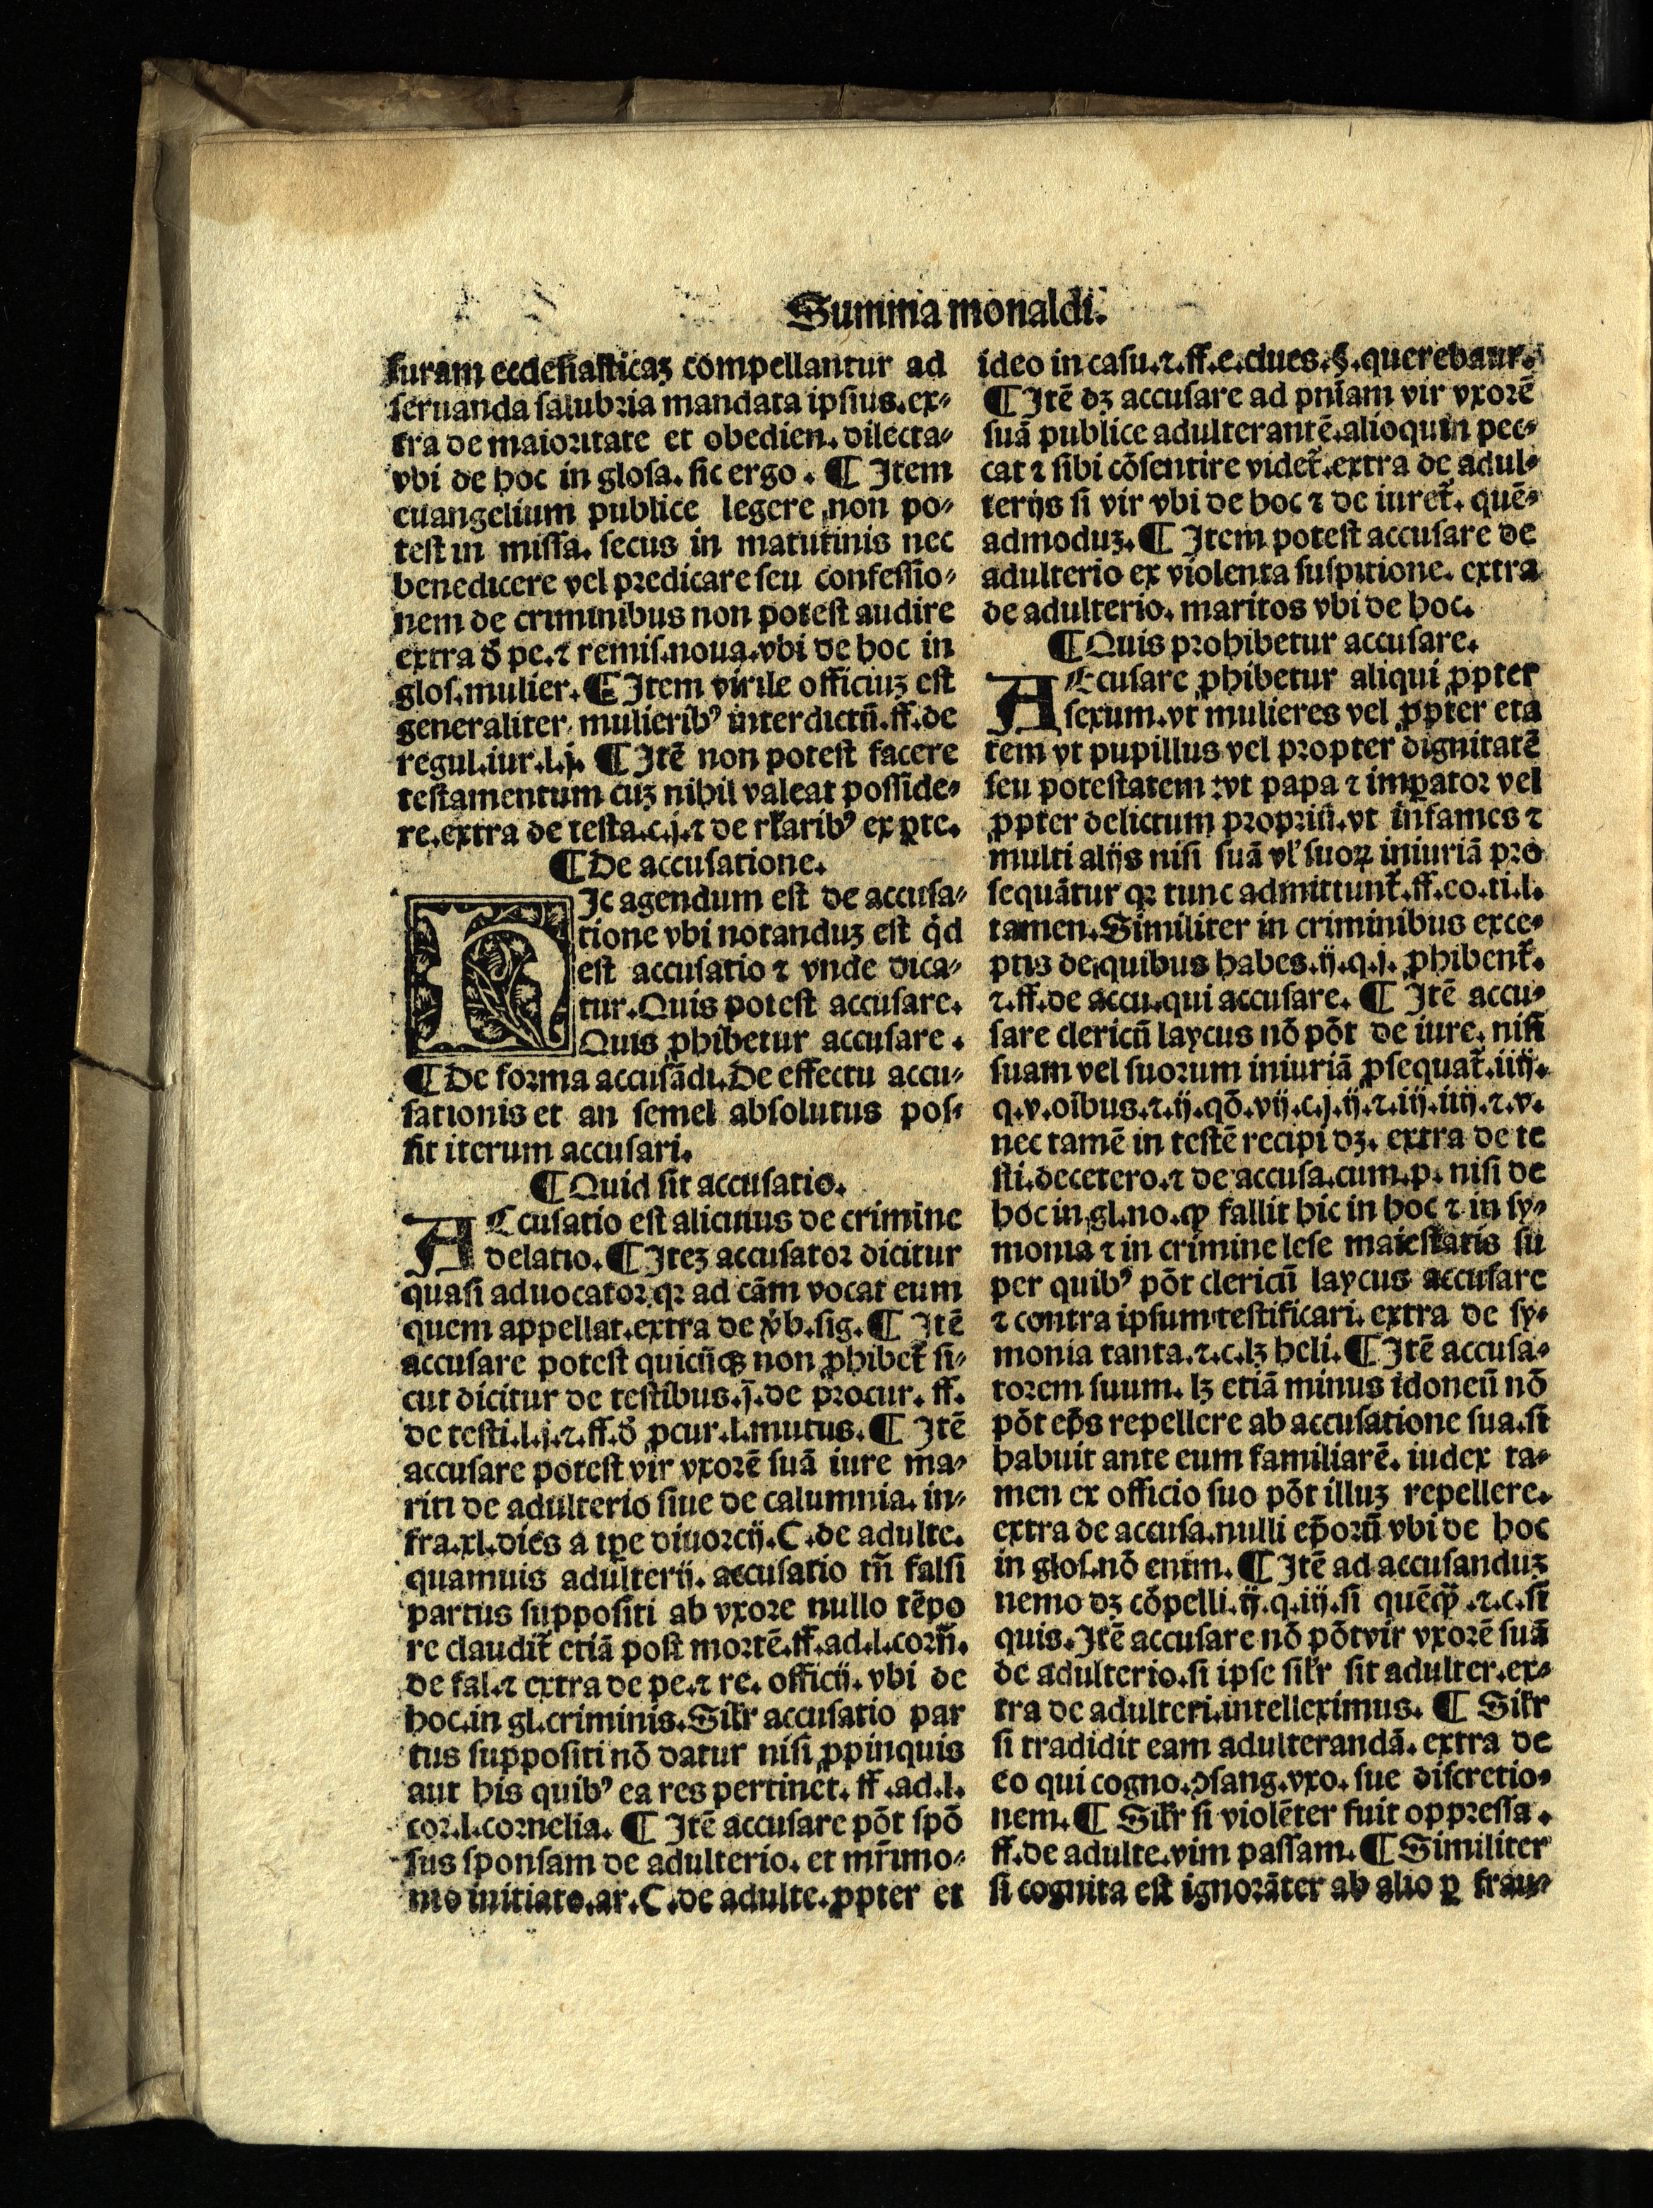 Summa monaldi.
suram ecclesiasticaꝫ compellantur ad
seruanda salubria mandata ipsius. ex-
tra de maioritate et obedien. dilecta-
vbi de hoc in glosa. sic ergo. ¶ Item
euangelium publice legere non po-
test in missa. secus in matutinis nec
benedicere vel predicare seu confessio-
nem de criminibus non potest audire
extra d̄ pe. ⁊ remis. noua. vbi de hoc in
glos. mulier. ¶ Item virile officiuꝫ est
generaliter mulierib⁹ interdictū. ff. de
regul. iur. l. j. ¶ Itē non potest facere
testamentum cuꝫ nihil valeat posside-
re. extra de testa. c. j. ⁊ de rl̄arib⁹ ex ꝑte.
¶ De accusatione.
HIc agendum est de accusa-
tione vbi notanduꝫ est qd
est accusatio ⁊ vnde dica-
tur. Quis potest accusare.
Quis ꝓhibetur accusare.
¶ De forma accusādi. De effectu accu-
sationis et an semel absolutus pos-
sit iterum accusari.
¶ Quid sit accusatio.
ACcusatio est alicuius de crimine
delatio. ¶ Iteꝫ accusator dicitur
quasi aduocator qꝛ ad cām vocat eum
quem appellat. extra de v̾b. sig. ¶ Itē
accusare potest quicūqꝫ non ꝓhibet̄ si-
cut dicitur de testibus. j̄. de procur. ff.
de testi. l. j. ⁊. ff. d̄ ꝓcur. l. mutus. ¶ Itē
accusare potest vir vxorē suā iure ma-
riti de adulterio siue de calumnia. in-
fra. xl. dies a tꝑe diuorcij. C. de adulte.
quamuis adulterij. accusatio tn̄ falsi
partus suppositi ab vxore nullo tēpo
re claudit̄ etiā post mortē. ff. ad. l. corn̄.
de fal. ⁊ extra de pe. ⁊ re. officij. vbi de
hoc. in gl. criminis. Sil̄r accusatio par
tus suppositi nō datur nisi ꝓpinquis
aut his quib⁹ ea res pertinet. ff. ad. l.
cor. l. cornelia. ¶ Itē accusare pōt spō
sus sponsam de adulterio. et mr̄imo-
nio initiato. ar. C. de adulte. ꝓpter et
ideo in casu. ⁊. ff. e. ciues. §. querebatur.
¶ Itē dꝫ accusare ad pn̄iam vir vxorē
suā publice adulterantē. alioquin pec-
cat ⁊ sibi cōsentire videt̄. extra de adul-
terijs si vir vbi de hoc ⁊ de iuret̄. quē-
admoduꝫ. ¶ Item potest accusare de
adulterio ex violenta suspitione. extra
de adulterio. maritos vbi de hoc.
¶ Quis prohibetur accusare.
ACcusare ꝓhibetur aliqui ꝓpter
sexum. vt mulieres vel ꝓpter eta
tem vt pupillus vel propter dignitatē
seu potestatem : vt papa ⁊ imꝑator vel
ꝓpter delictum propriū. vt infames ⁊
multi alijs nisi suā vl̄ suoꝝ iniuriā pro
sequātur qꝛ tunc admittunt̄. ff. eo. ti. l.
tamen. Similiter in criminibus exce-
ptis de quibus habes. ij. q. j. ꝓhibent̄.
⁊. ff. de accu. qui accusare. ¶ Itē accu-
sare clericū laycus nō pōt de iure. nisi
suam vel suorum iniuriā ꝓsequat̄. iiij.
q. v. oībus. ⁊. ij. qō. vij. c. j. ij. ⁊. iij. iiij. ⁊. v.
nec tamē in testē recipi dꝫ. extra de te
sti. decetero. ⁊ de accusa. cum. p. nisi de
hoc in gl. no. ꝙ fallit hic in hoc ⁊ in sy-
monia ⁊ in crimine lese maiestatis su
per quib⁹ pōt clericū laycus accusare
⁊ contra ipsum testificari. extra de sy-
monia tanta. ⁊. c. lꝫ heli. ¶ Itē accusa-
torem suum. lꝫ etiā minus idoneū nō
pōt ep̄s repellere ab accusatione sua. si
habuit ante eum familiarē. iudex ta-
men ex officio suo pōt illuꝫ repellere.
extra de accusa. nulli ep̄orū vbi de hoc
in glos. nō enim. ¶ Itē ad accusanduꝫ
nemo dꝫ cōpelli. ij. q. iij. si quēꝙ̄. ⁊. c. si
quis. Itē accusare nō pōt vir vxorē suā
de adulterio. si ipse sil̄r sit adulter. ex-
tra de adulteri. intelleximus. ¶ Sil̄r
si tradidit eam adulterandā. extra de
eo qui cogno. ꝯsang. vxo. sue discretio-
nem. ¶ Sil̄r si violēter fuit oppressa.
ff. de adulte. vim passam. ¶ Similiter
si cognita est ignorāter ab alio ꝑ frau-